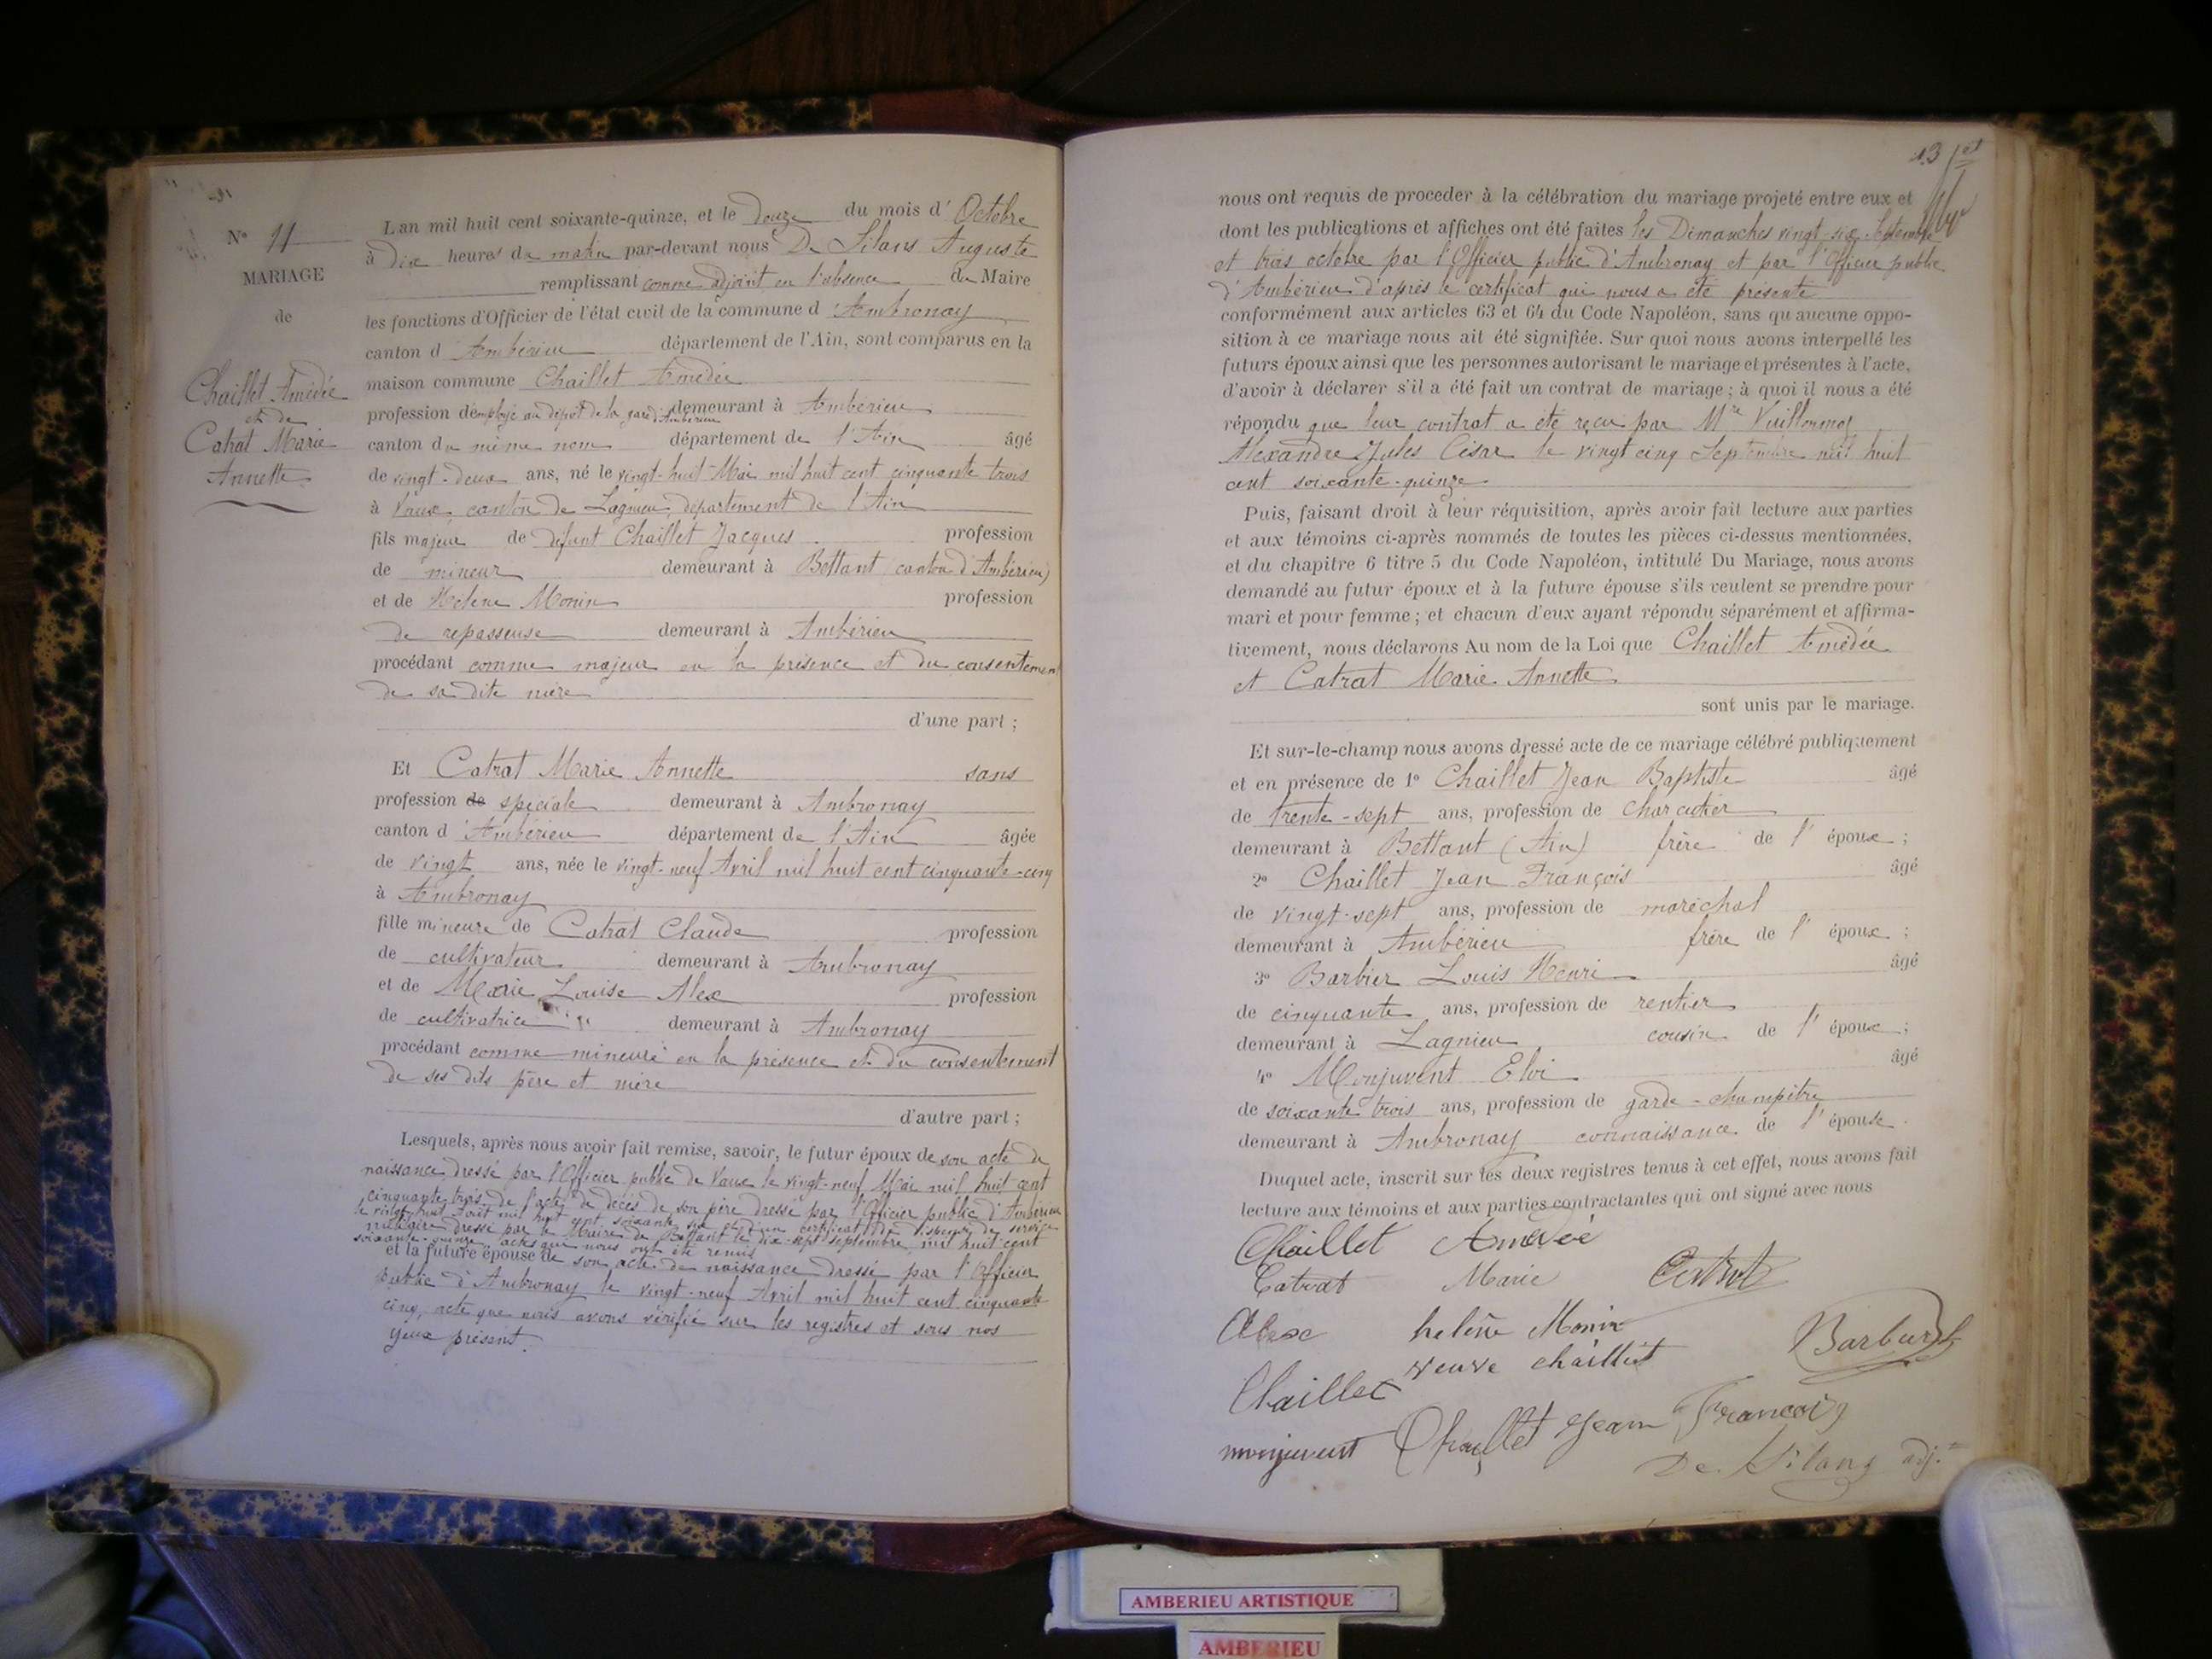 N° 11
MARIAGE
de
Chaillet Amédée
et de
Catrat Marie
Annette
L'an mil huit cent soixante-quinze, et le Douze du mois d'Octobre
à dix heures du matin par-devant nous De Silans Auguste
remplissant comme adjoint en l'absence du Maire
les fonctions d'Officier de l'état civil de la commune d'Ambronay
canton d'Ambérieu département de l'Ain, sont comparus en la
maison commune Chaillet Amédée
profession d'employé au dépôt de la gare d'Ambérieu demeurant à Ambérieu
canton du même nom département de l'Ain âgé
de vingt-deux ans, né le vingt-huit Mai mil huit cent cinquante trois
à Vaux, canton de Lagnieu, département de l'Ain
fils majeur de défunt Chaillet Jacques profession
de mineur demeurant à Bettant canton d'Ambérieu)
et de Hélène Monin profession
de repasseuse demeurant à Ambérieu
procédant comme majeur en la présence et du consentement
de sa dite mère
d'une part ;
Et Catrat Marie Annette sans
profession de spéciale demeurant à Ambronay
canton d'Ambérieu département de l'Ain âgée
de vingt ans, née le vingt-neuf Avril mil huit cent cinquante-cinq
à Ambronay
fille mineure de Catrat Claude profession
de cultivateur demeurant à Ambronay
et de Marie Louise Alex profession
de cultivatrice demeurant à Ambronay
procédant comme mineure en la présence et du consentement
de ses dits père et mère
d'autre part ;
Lesquels, après nous avoir fait remise, savoir, le futur époux de son acte de
naissance dressé par l'Officier public de Vaux le vingt-neuf Mai mil huit cent
cinquante trois, de l'acte de décès de son père dressé par l'Officier public d'Ambérieu
le vingt-huit Août mil huit cent soixante six et d'un certificat de dispense de service
militaire dressé par le Maire de Bettant le dix-sept septembre mil huit cent
soixante-quinze, actes que nous ont été remis
et la future épouse de son acte de naissance dressé par l'Officier
public d'Ambronay le vingt-neuf Avril mil huit cent cinquante
cinq, acte que nous avons vérifié sur les registres et sous nos
yeux présent.
13
nous ont requis de proceder à la célébration du mariage projeté entre eux et
dont les publications et affiches ont été faites les Dimanches vingt-six Septembre
et trois octobre par l'Officier public d'Ambronay et par l'Officier public
d'Ambérieu d'après le certificat qui nous a été présenté
conformément aux articles 63 et 64 du Code Napoléon, sans qu'aucune oppo-
sition à ce mariage nous ait été signifiée. Sur quoi nous avons interpellé les
futurs époux ainsi que les personnes autorisant le mariage et présentes à l'acte,
d'avoir à déclarer s'il a été fait un contrat de mariage ; à quoi il nous a été
répondu que leur contrat a été reçu par Mre Vuillermoz
Alexandre Jules César le vingt cinq Septembre mil huit
cent soixante-quinze
Puis, faisant droit à leur réquisition, après avoir fait lecture aux parties
et aux témoins ci-après nommés de toutes les pièces ci-dessus mentionnées,
et du chapitre 6 titre 5 du Code Napoléon, intitulé Du Mariage, nous avons
demandé au futur époux et à la future épouse s'ils veulent se prendre pour
mari et pour femme ; et chacun d'eux ayant répondu séparément et affirma-
tivement, nous déclarons Au nom de la Loi que Chaillet Amédée
et Catrat Marie Annette
sont unis par le mariage.
Et sur-le-champ nous avons dressé acte de ce mariage célébré publiquement
et en présence de 1° Chaillet Jean Baptiste âgé
de trente-sept ans, profession de charcutier
demeurant à Bettant (Ain) frère de l'époux ;
2° Chaillet Jean François âgé
de vingt-sept ans, profession de maréchal
demeurant à Ambérieu frère de l'époux ;
3° Barbier Louis Henri âgé
de cinquante ans, profession de rentier
demeurant à Lagnieu cousin de l'époux ;
4° Monjuvent Eloi âgé
de soixante trois ans, profession de garde-champêtre
demeurant à Ambronay connaissance de l'épouse.
Duquel acte, inscrit sur les deux registres tenus à cet effet, nous avons fait
lecture aux témoins et aux parties contractantes qui ont signé avec nous
Chaillet Amédée
Catrat Marie Catrat
Alex helène Monin
veuve chaillet
Chaillet
monjuvent Chaillet Jean François
De Silans adj.t
AMBERIEU ARTISTIQUE
AMBERIEU